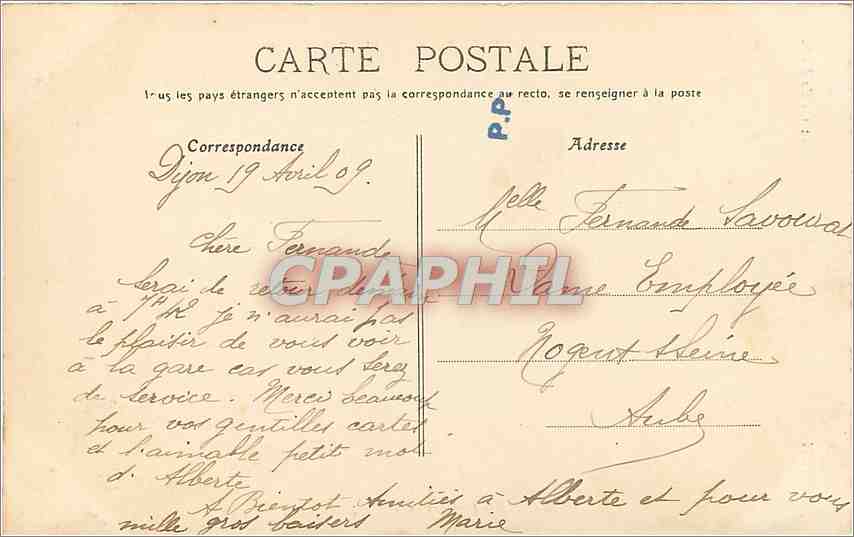 CARTE POSTALE
Tous les pays étrangers n'acceptent pas la correspondance au recto, se renseigner à la poste
P.P
Correspondance
Dijon 19 Avril 09.
Chere Fernande
Serai de retour demain
à 7H42 je n'aurai pas
le plaisir de vous voir
à la gare cas vous serez
de service. Merci beaucoup
pour vos gentilles cartes
et l'aimable petit mot
d'Alberte
A Bientot Amitiés à Alberte et pour vous
mille gros baisers Marie
Adresse
Melle Fernande Savourat
Dame Employée
Nogent s/Seine
Aube
CPAPHIL